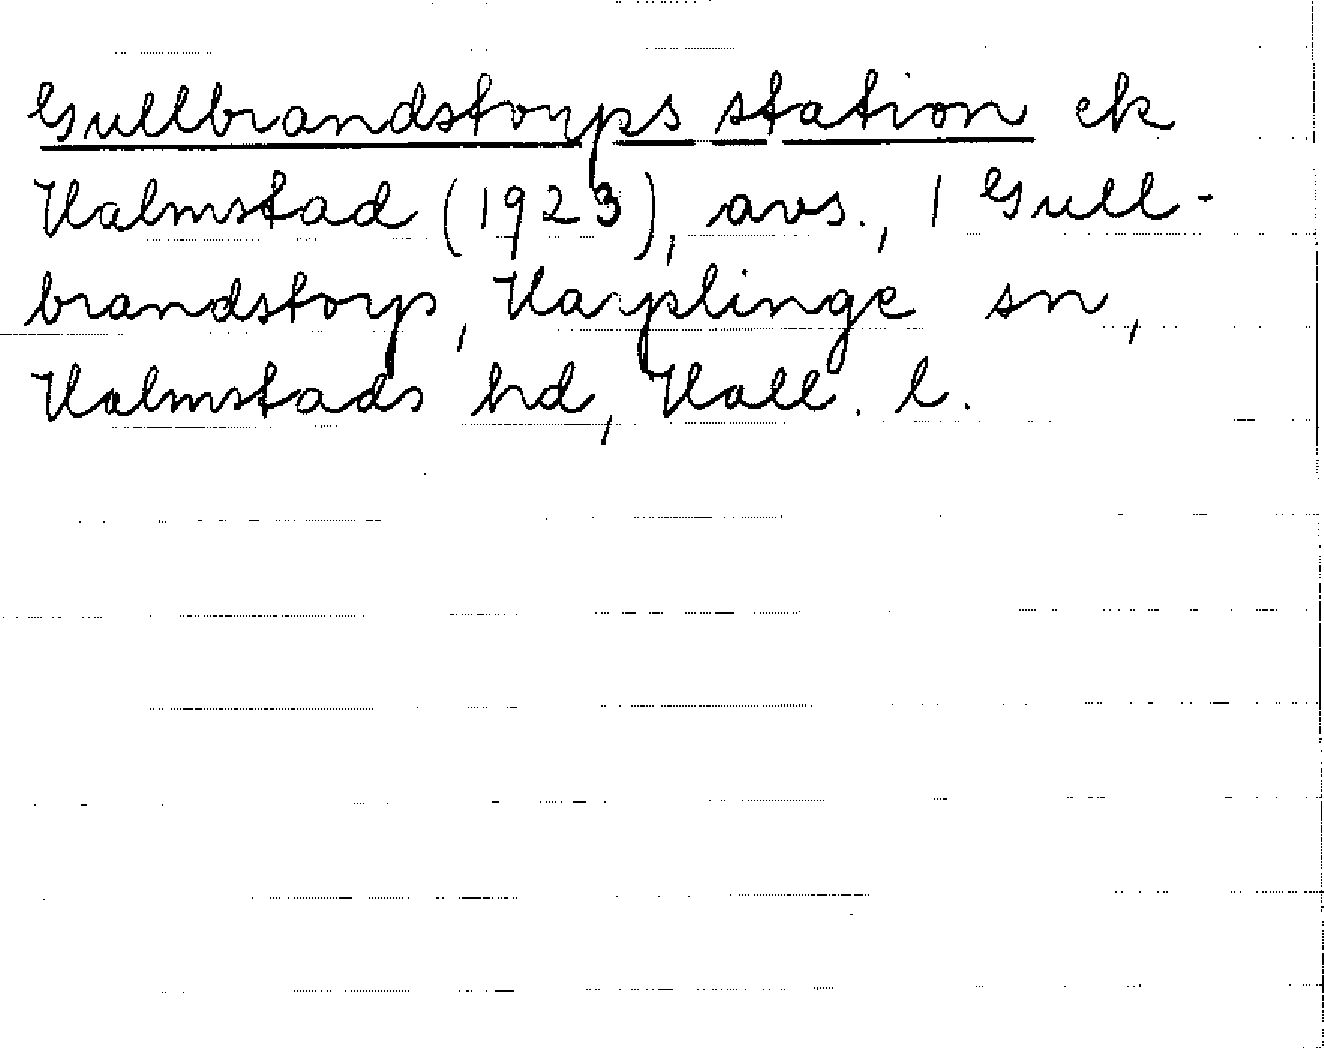 Gullbrandstorps station ek
Halmstad (1923), avs., 1 Gull-
brandstorp, Harplinge sn,
Halmstads hd, Hall. l.